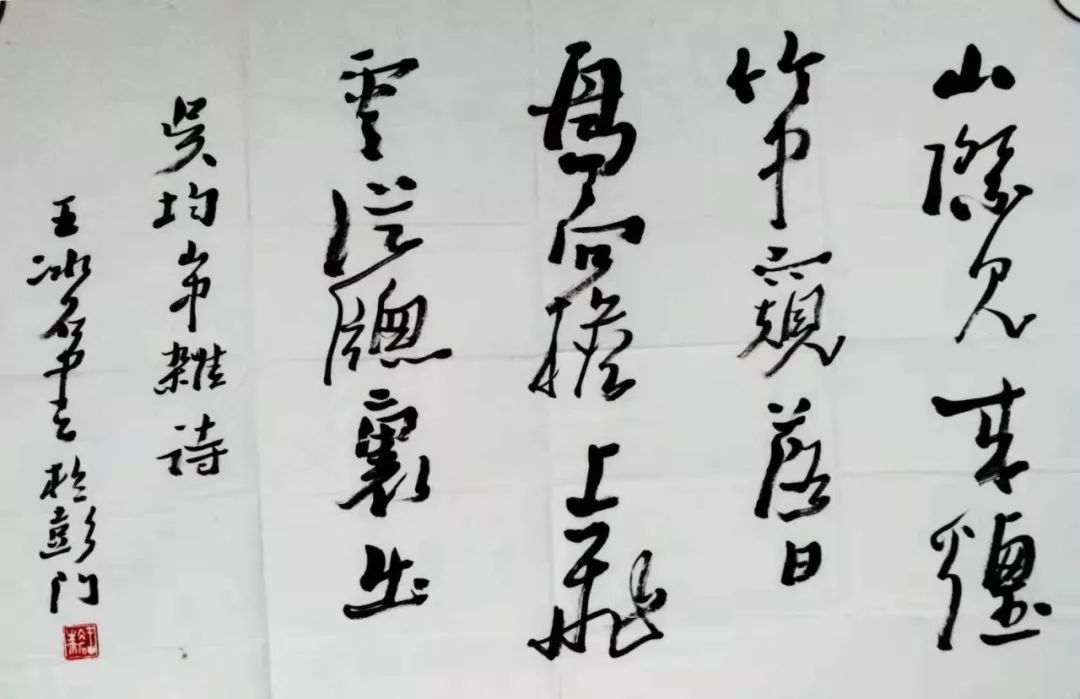 山際見来煙
竹中窺落日
鳥向檐上飛
雲從牕裏出
吳均山中雜詩
王冰石書於彭门